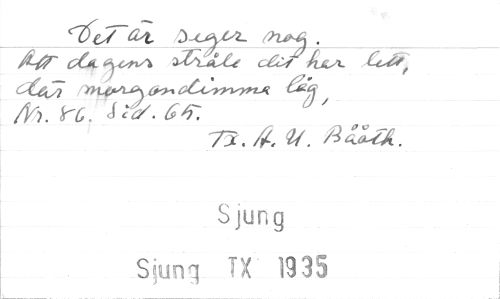 Det är seger nog.
Att dagens stråle dit har lett,
där morgondimma låg,
Nr. 86. Sid. 65.
Tx. A. U. Bååth.
Sjung
Sjung TX 1935